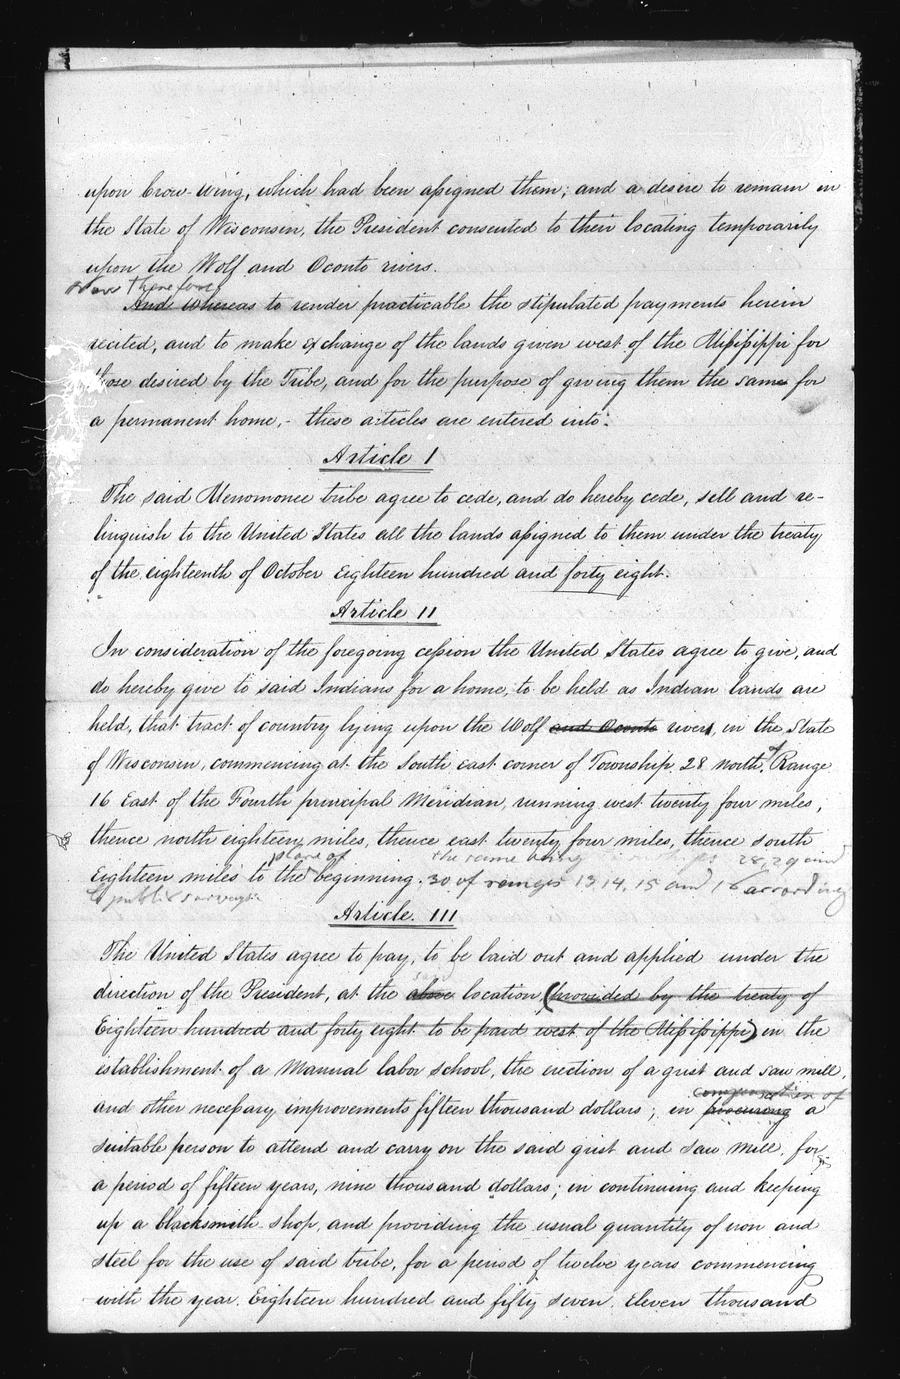 upon Crow-Wing, which had been assigned them; and a desire to remain in
the State of Wisconsin, the President consented to their locating temporarily
upon the Wolf and Oconto rivers.
Now therefore
And whereas to render practicable the stipulated payments herein
recited, and to make exchange of the lands given west of the Mississippi for
those desired by the Tribe, and for the purpose of giving them the same for
a permanent home,- these articles are entered into:
Article I
The said Menomonee tribe agree to cede, and do hereby cede, sell and re-
linquish to the United States all the lands assigned to them under the treaty
of the eighteenth of October Eighteen hundred and forty eight.
Article II
In consideration of the foregoing cession the United States agree to give, and
do hereby give to said Indians for a home, to be held as Indian lands are
held, that tract of country lying upon the Wolf and Oconto river, in the State
of Wisconsin, commencing at the South east corner of Township 28 north of Range
16 East of the Fourth principal Meridian, running west twenty four miles,
thence north eighteen miles, thence east twenty four miles, thence south
place of the same being townships 28, 29 and
Eighteen miles to the beginning. 30 of ranges 13, 14, 15 and 16 according
to public surveys.
Article III
The United States agree to pay, to be laid out and applied under the
said
direction of the President, at the above location (provided by the treaty of
Eighteen hundred and forty eight to be paid west of the Mississippi) in the
establishment of a Manual labor school, the erection of a grist and saw mill,
compensation of
and other necessary improvements fifteen thousand dollars; in procuring a
suitable person to attend and carry on the said grist and saw mill, for
a period of fifteen years, nine thousand dollars; in continuing and keeping
up a blacksmith shop, and providing the usual quantity of iron and
steel for the use of said tribe, for a period of twelve years commencing
with the year Eighteen hundred and fifty seven. Eleven thousand